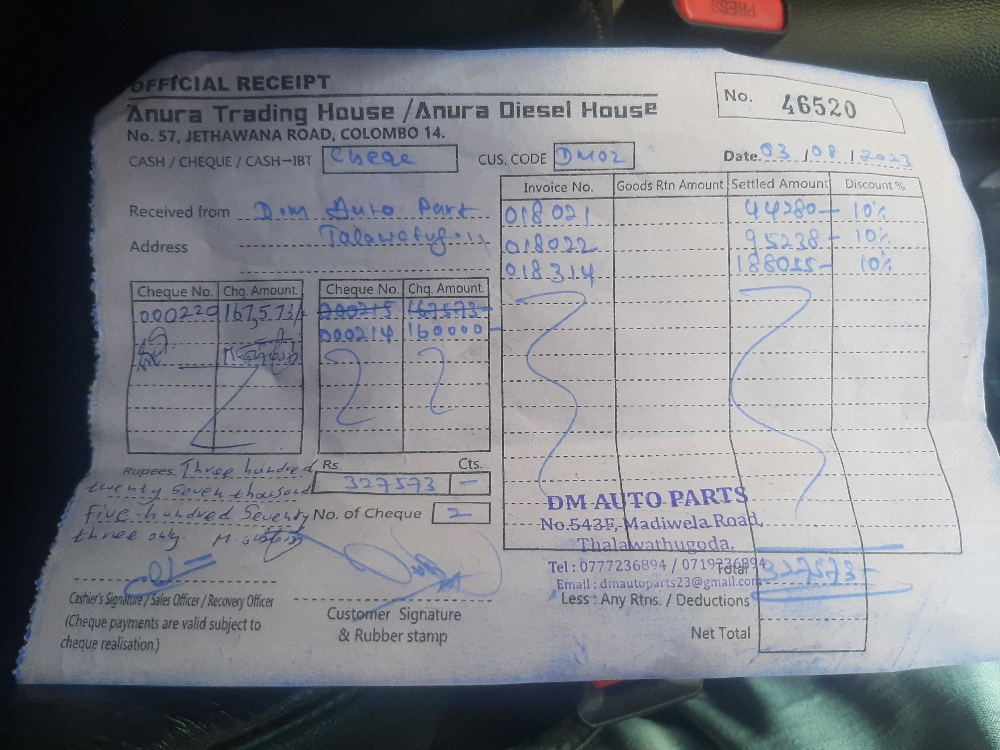 PRESS
OFFICIAL RECEIPT
No. 46520
Anura Trading House / Anura Diesel House
No. 57, JETHAWANA ROAD, COLOMBO 14.
CASH / CHEQUE / CASH-IBT Cheqe CUS. CODE DM02 Date. 03 / 08 / 2023
Invoice No. Goods Rtn Amount Settled Amount Discount %
Received from Dim Auto Part
018021 44280- 10%
Address
018022 95238- 10%
018314 188055- 10%
Cheque No. Chq. Amount. Cheque No. Chq. Amount.
000220 167,573/- 000215 167573-
000214 160000-
Rupees. Three hundred Rs. Cts.
twenty seven thousand 327573 -
five hundred Seventy No. of Cheque 2
three only.
DM AUTO PARTS
No.543F, Madiwela Road,
Thalawathugoda.
Tel : 0777236894 / 0719236894
Total 327573-
Email : dmautoparts23@gmail.com
Less : Any Rtns. / Deductions
Net Total
Cashier's Signature / Sales Officer / Recovery Officer
(Cheque payments are valid subject to
cheque realisation.)
Customer Signature
& Rubber stamp